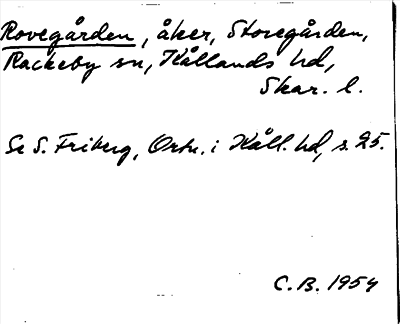 Rovegården, åker, Storegården,
Rackeby sn, Kållands hd,
Skar. l.
Se S. Friberg, Ortn. i Kåll. hd, s. 25.
C.B. 1954